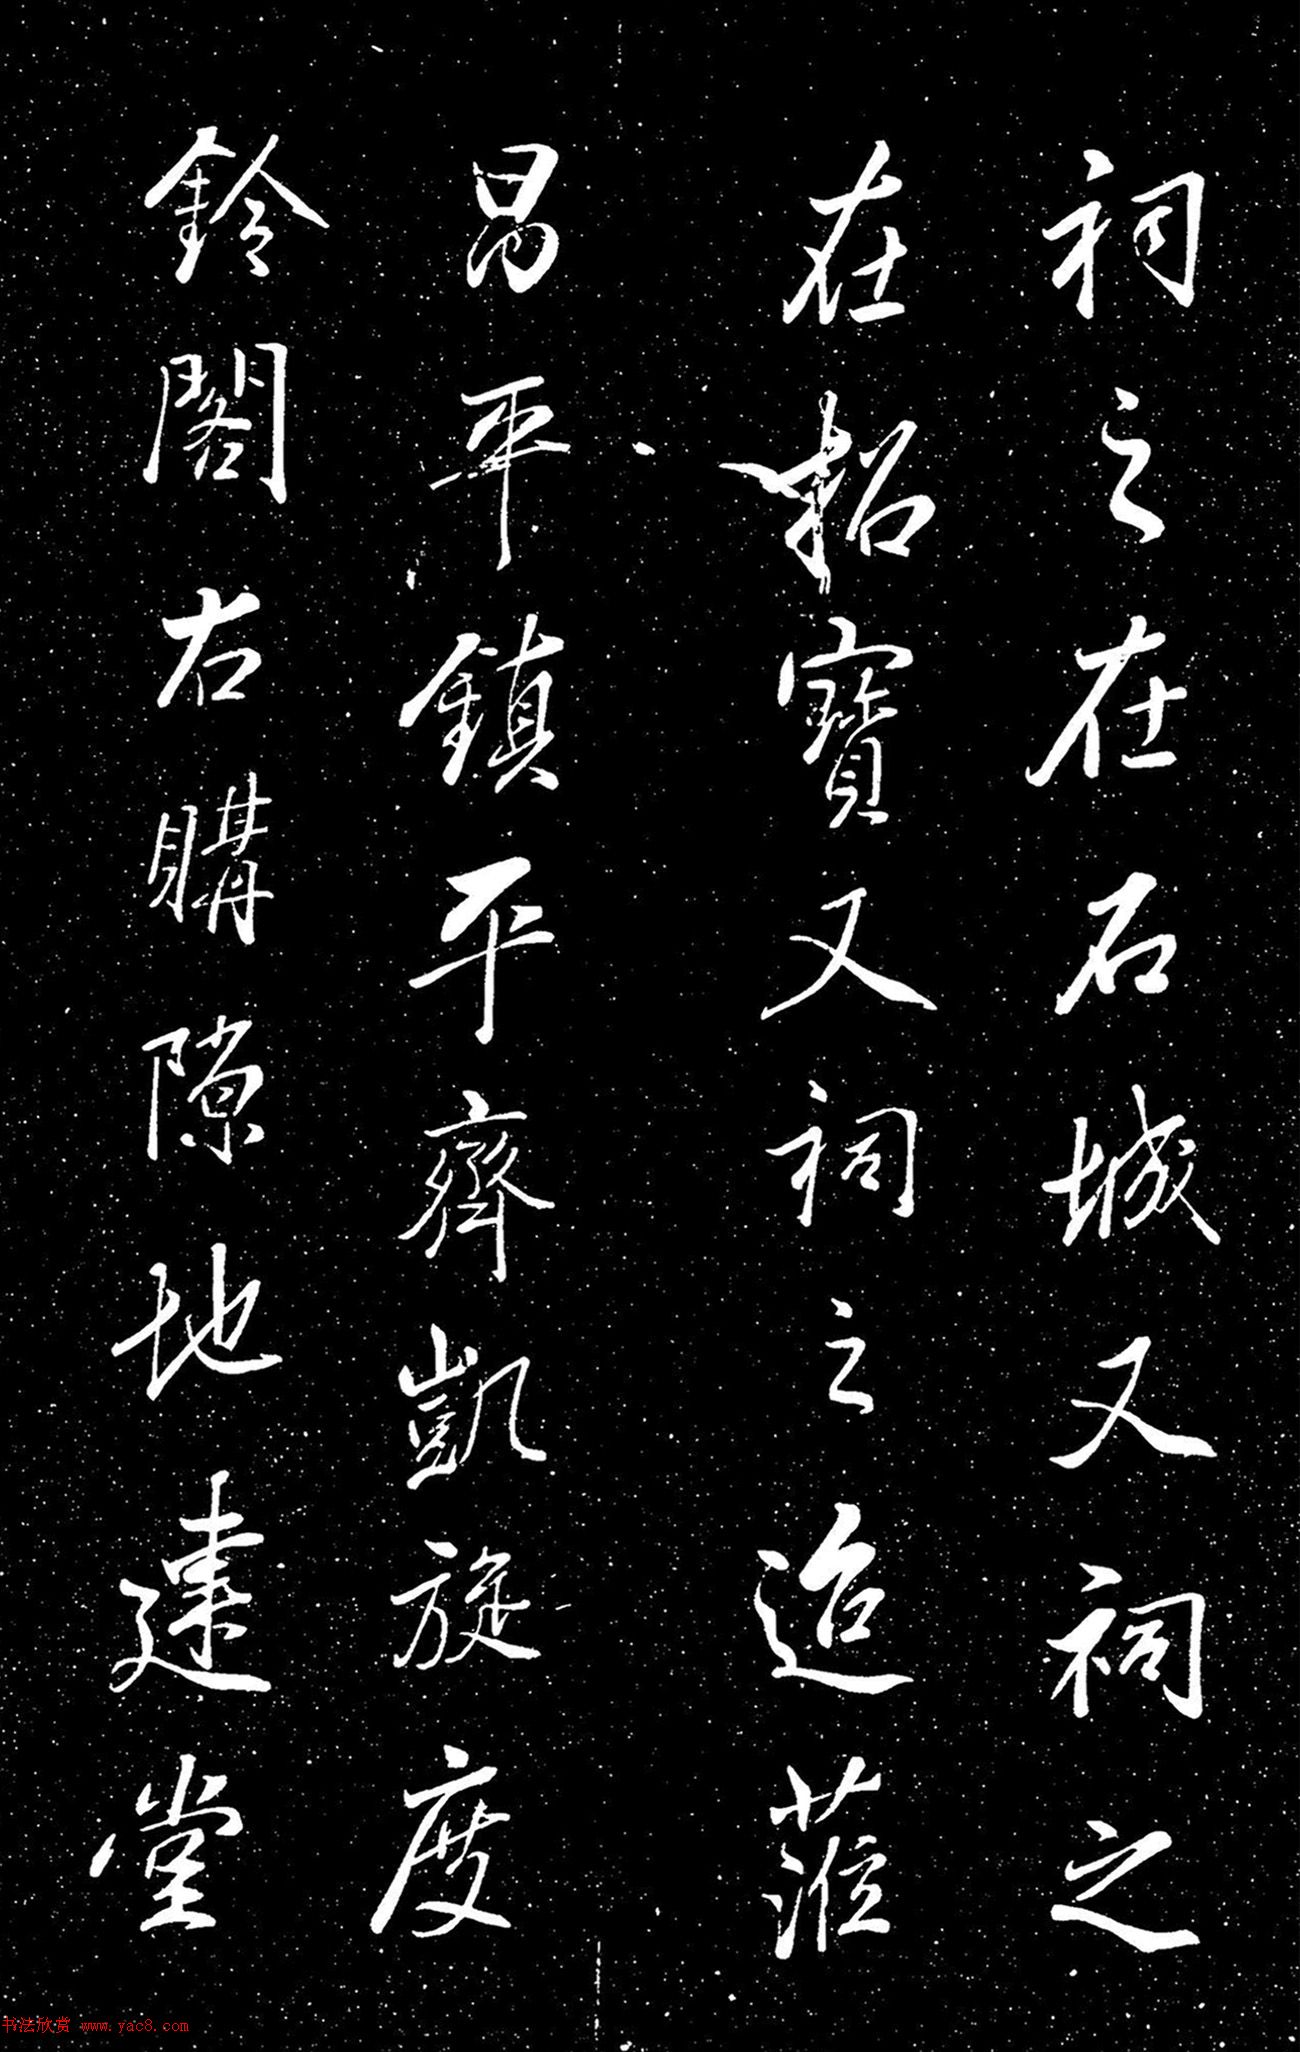 祠之在石城又祠之
在招寶又祠之迨蒞
昌平鎮平齊凱旋度
鈴閣右購隙地建堂
书法欣赏 www.yac8.com